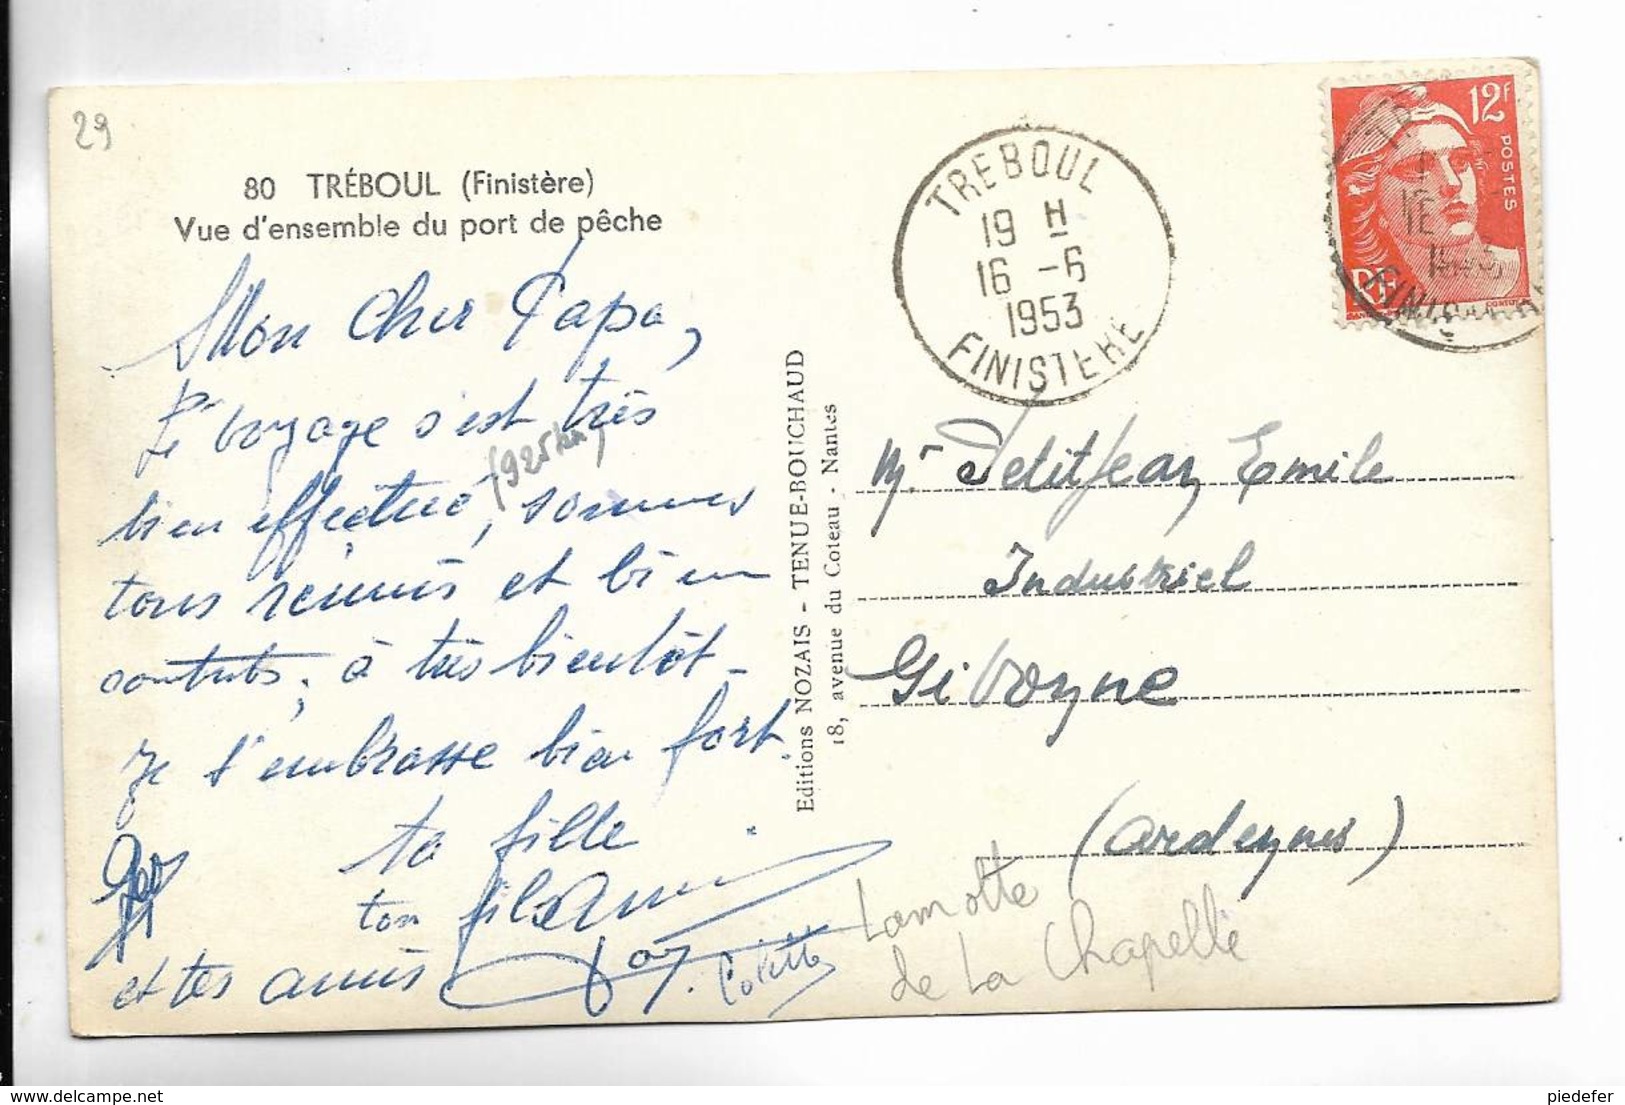 29
80 TRÉBOUL (Finistère)
Vue d'ensemble du port de pêche
Mon Cher Papa,
Le voyage s'est très
(925 km)
bien effectué, sommes
tous réunis et bien
contents, à très bientôt -
je t'embrasse bien fort.
ta fille
ton fils
et tes amis
Colette
Editions NOZAIS - TENUE-BOUCHAUD
18, avenue du Coteau - Nantes
TREBOUL
19 H
16 -6
1953
FINISTERE
12f
POSTES
RF
FINIS
Mr Petitjean Emile
Industriel
Givoyne
(Ardeynes)
Lamotte
de La Chapelle
piedefer